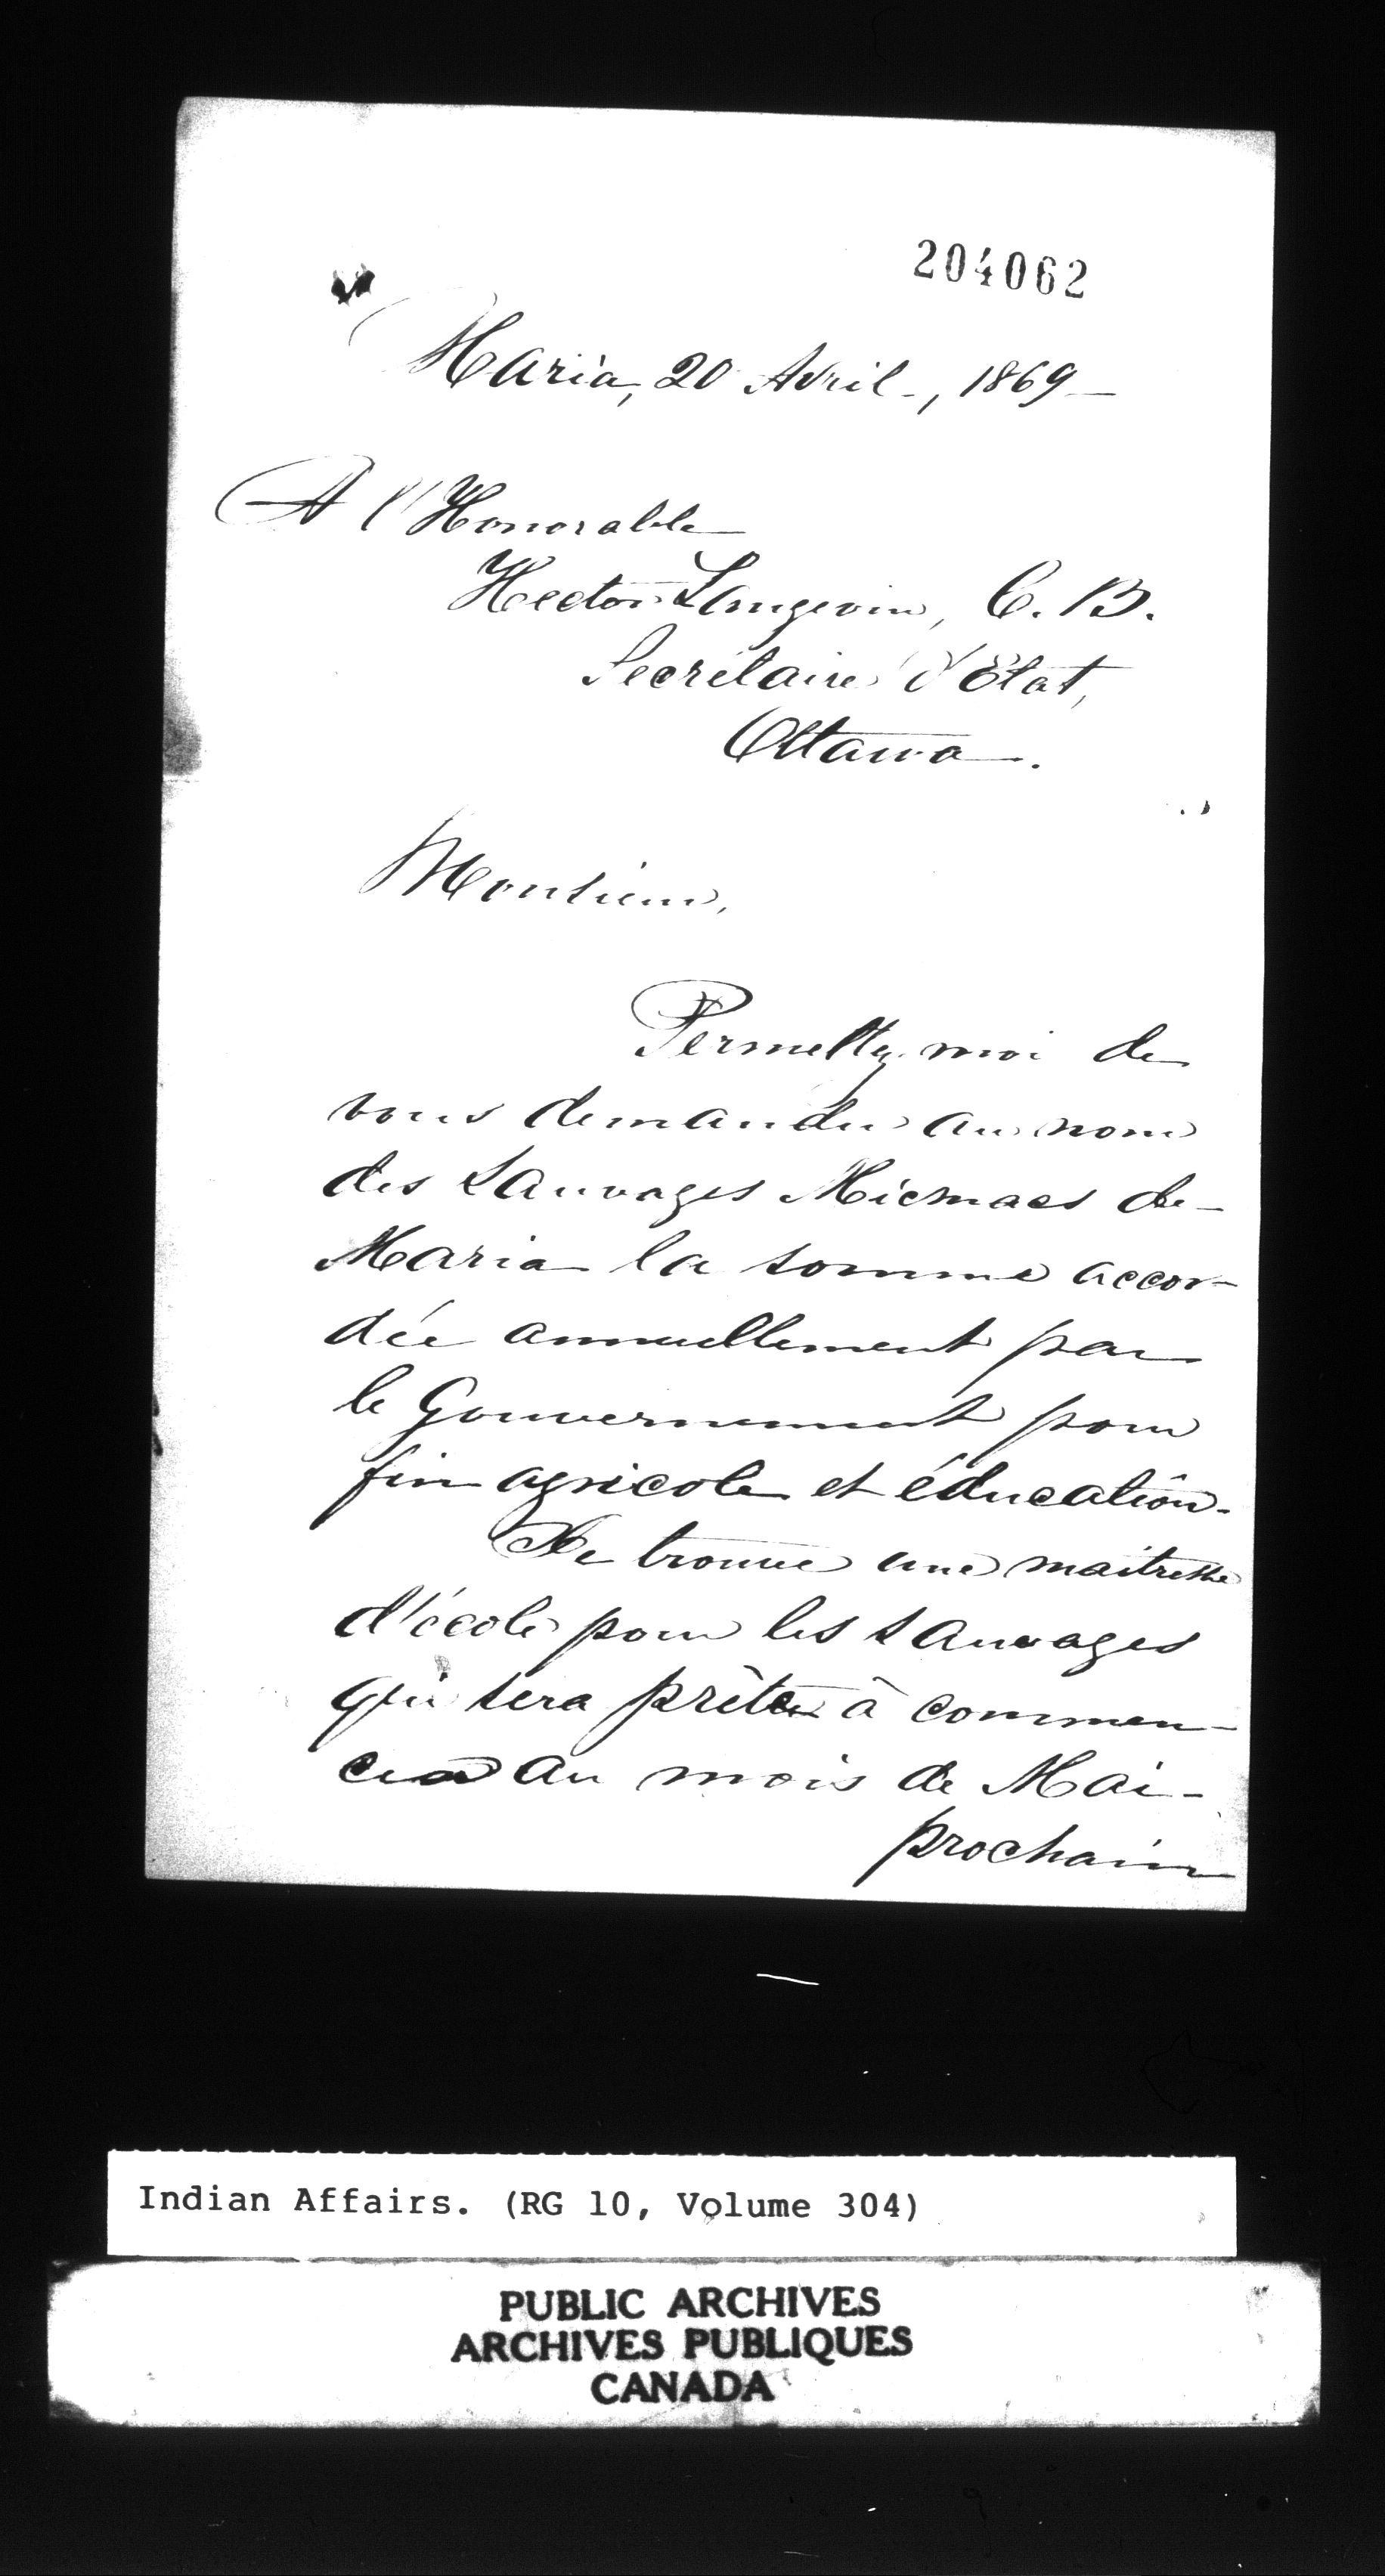 204062
Maria, 20 Avril, 1869
A l'Honorable
Hector Langevin, C. B.
Secrétaire d'État,
Ottawa.
Monsieur,
Permettez moi de
vous demander au nom
des Sauvages Micmacs de
Maria la somme accor-
dée annuellement par
le Gouvernement pour
fin agricole et éducation.
Je trouve une maitresse
d'école pour les sauvages
qui sera prête à commen-
cer au mois de Mai
prochain
Indian Affairs. (RG 10, Volume 304)
PUBLIC ARCHIVES
ARCHIVES PUBLIQUES
CANADA